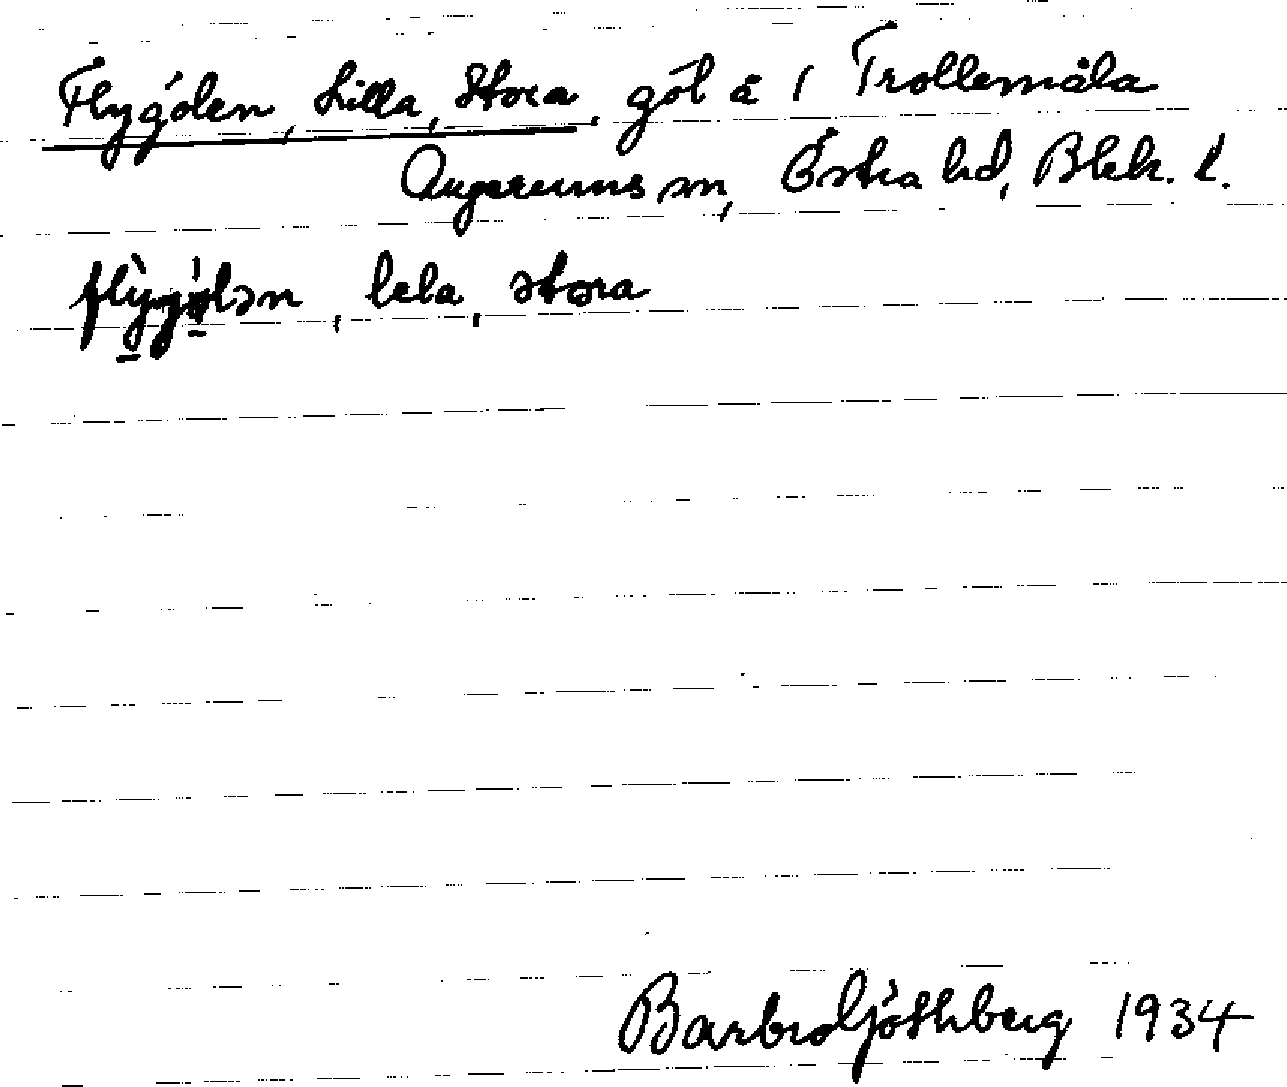 Flygölen, Lilla, Stora, göl å 1 Trollemåla
Augerums sn, Östra hd, Blek. l.
flỳgǿlən, lela, stora
Barbro Göthberg 1934